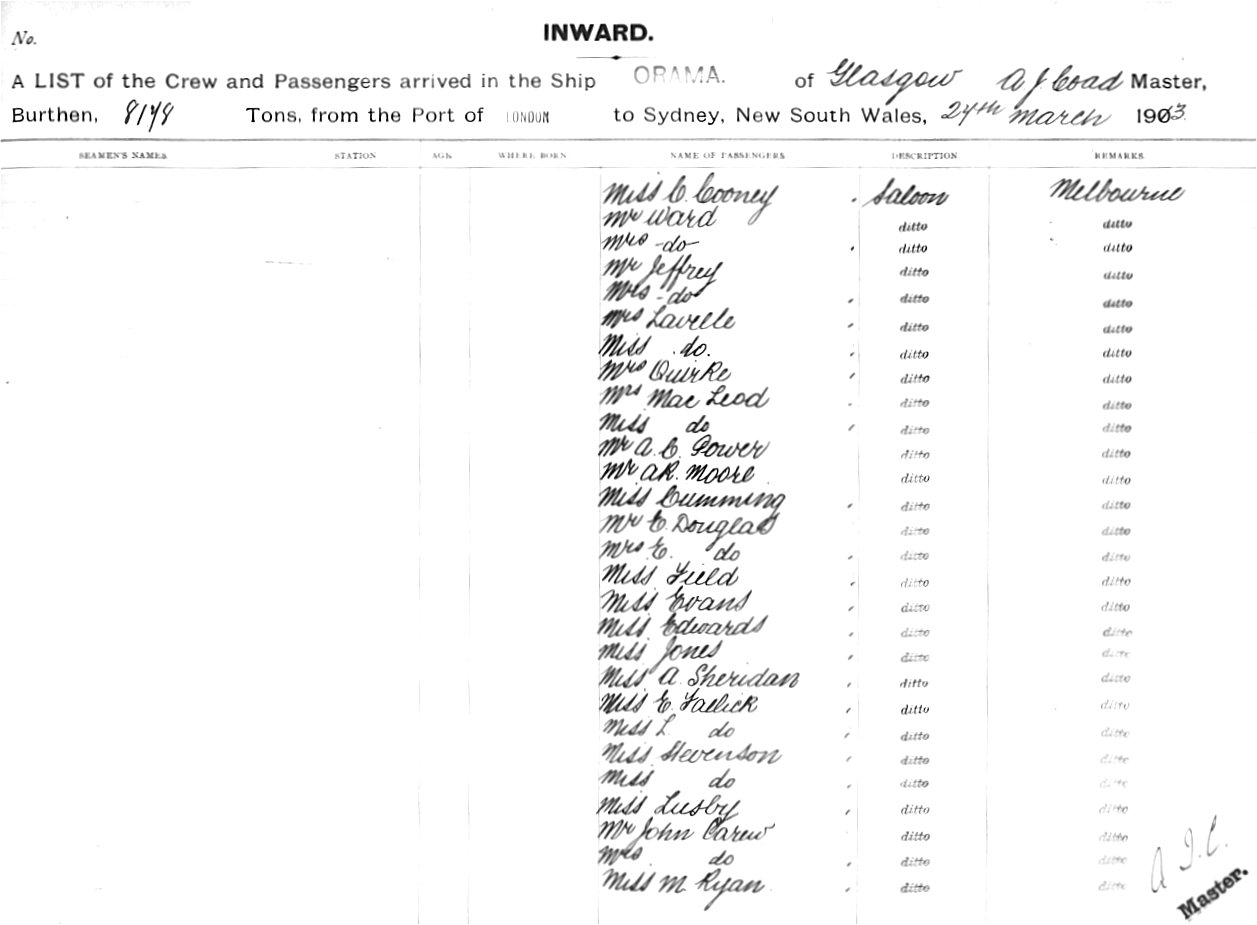 No.
INWARD.
A LIST of the Crew and Passengers arrived in the Ship ORAMA. of Glasgow A J Coad Master,
Burthen, 8178 Tons, from the Port of LONDON to Sydney, New South Wales, 24th March 1903.
SEAMEN'S NAMES STATION AGE WHERE BORN NAME OF PASSENGERS DESCRIPTION REMARKS
Miss C. Cooney Saloon Melbourne
Mr Ward ditto ditto
Mrs -do- ditto ditto
Mr Jeffrey ditto ditto
Mrs -do ditto ditto
Mrs Lavelle ditto ditto
Miss do. ditto ditto
Mrs Quirke ditto ditto
Mrs Mac Leod ditto ditto
Miss do ditto ditto
Mr A. C. Power ditto ditto
Mr A R. Moore ditto ditto
Miss Cumming ditto ditto
Mr E. Douglas ditto ditto
Mrs E. do ditto ditto
Miss Field ditto ditto
Miss Evans ditto ditto
Miss Edwards ditto ditto
Miss Jones ditto ditto
Miss A. Sheridan ditto ditto
Miss E. Fallick ditto ditto
Miss L. do ditto ditto
Miss Stevenson ditto ditto
Miss do ditto ditto
Miss Lusby ditto ditto
Mr John Carew ditto ditto
Mrs do ditto ditto
Miss M. Ryan ditto ditto
A J. C.
Master.